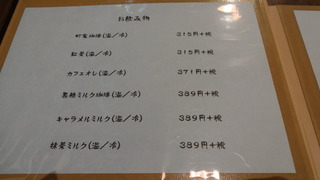 お飲み物
町家珈琲(温／冷) 315円+税
紅茶(温／冷) 315円+税
カフェオレ(温／冷) 371円+税
黒糖ミルク珈琲(温／冷) 389円+税
キャラメルミルク(温／冷) 389円+税
抹茶ミルク(温／冷) 389円+税